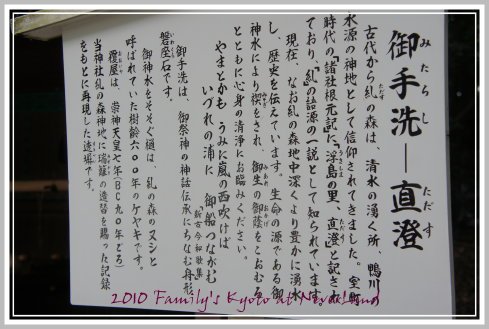 御手洗―直澄
みたらし ただす
古代から糺の森は、清水の湧く所、鴨川
水源の神地として信仰されてきました。室町
時代の諸社根元記に「浮島の里、直澄」と記され
ており、糺の語源の一説として知られています。
現在、なお糺の森地中深くより豊かに湧水
し、歴史を伝えています。生命の源である御
神水により禊をされ、御生の御蔭をこおむる
とともに心身の清浄にお臨みください。
やまとかも うみに嵐の西吹けば
いづれの浦に 御船つながむ
新古今和歌集
御手洗は、御祭神の神話伝承にちなむ舟形
磐座石です。
御神水をそそぐ樋は、糺の森のヌシと
呼ばれていた樹齢六〇〇年のケヤキです。
覆屋は、崇神天皇七年(BC九〇年ごろ)
当神社糺の森神地に瑞籬の造替を賜った記録
をもとに再現した
2010 Family's Kyoto at Neverland